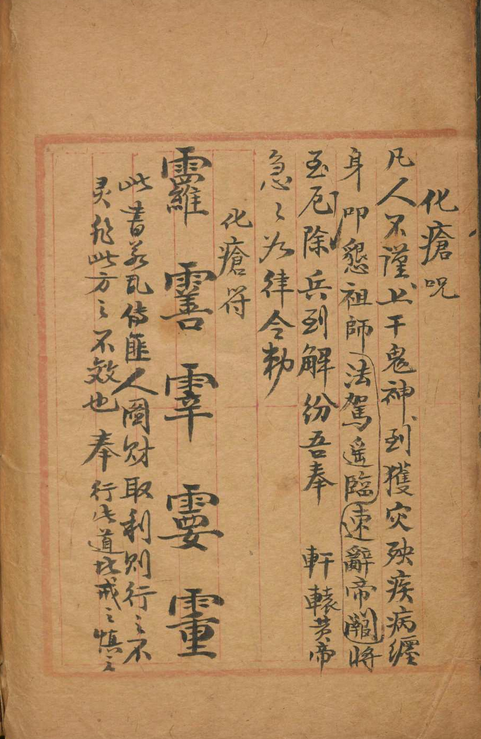 化瘡呪
凡人不謹上干鬼神到獲災殃疾病纏
身叩懇祖師法駕遥臨速辭帝闕將
至厄除兵到解紛吾奉 軒轅黄帝
急々如律令勅
化瘡符
䨏 𩆝 䨘 䨛 䨺
此書若乱傳匪人圖財取利則行之不
灵非此方之不效也 奉行此道此戒之慎之